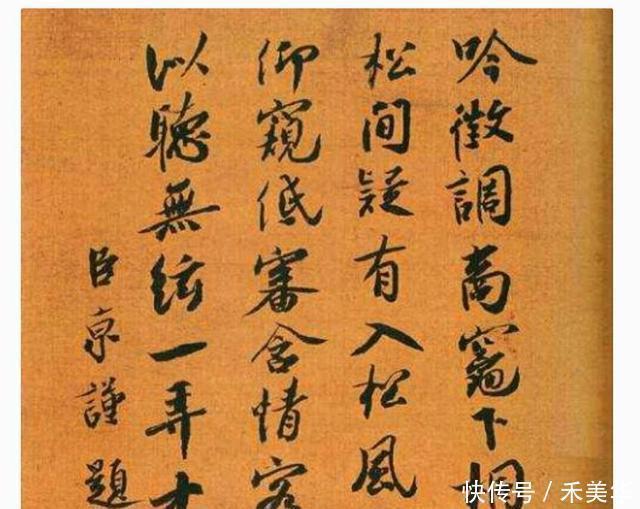 吟徵調商竈下桐
松間疑有入松風
仰窺低審含情客
似聽無絃一弄
臣京謹題
快传号 / 禾美华